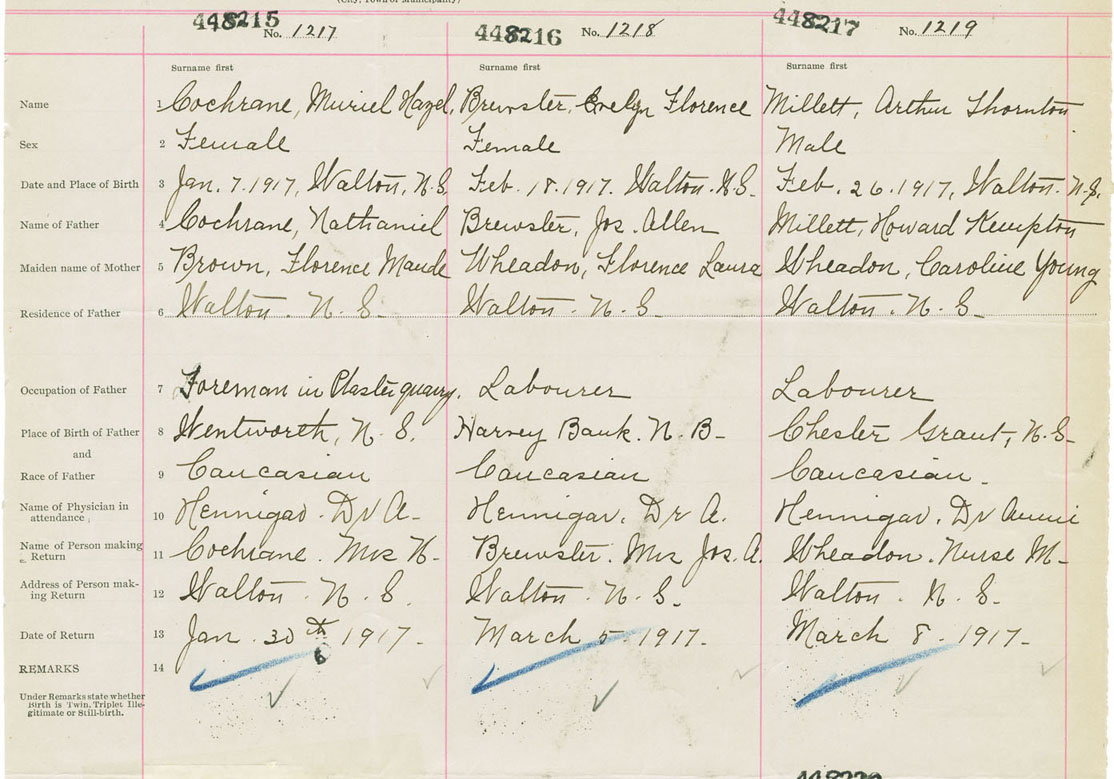 (City, Town or Municipality)
448215 No. 1217 448216 No. 1218 448217 No. 1219
Surname first Surname first Surname first
Name 1 Cochrane, Muriel Hazel, Brewster, Evelyn Florence Millett, Arthur Thornton
Sex 2 Female Female Male
Date and Place of Birth 3 Jan. 7. 1917, Walton, N.S. Feb. 18. 1917. Walton. N.S. Feb. 26. 1917, Walton. N.S.
Name of Father 4 Cochrane, Nathaniel Brewster, Jos. Allen Millett, Howard Kempton
Maiden name of Mother 5 Brown, Florence Maude Wheadon, Florence Laura Wheadon, Caroline Young
Residence of Father 6 Walton. N. S. Walton. N. S. Walton. N. S.
Occupation of Father 7 Foreman in Plaster quarry. Labourer Labourer
Place of Birth of Father 8 Wentworth, N. S. Harvey Bank. N. B. Chester Grant, N.S.
and
Race of Father 9 Caucasian Caucasian Caucasian.
Name of Physician in attendance 10 Hennigar. Dr A. Hennigar. Dr A. Hennigar. Dr Annie
Name of Person making Return 11 Cochrane. Mrs N. Brewster. Mrs Jos. A. Wheadon. Nurse M.
Address of Person mak-
ing Return 12 Walton. N. S. Walton. N. S. Walton. N. S.
Date of Return 13 Jan. 30th 1917. March 5. 1917. March 8. 1917.
REMARKS 14
Under Remarks state whether
Birth is Twin, Triplet Ille-
gitimate or Still-birth.